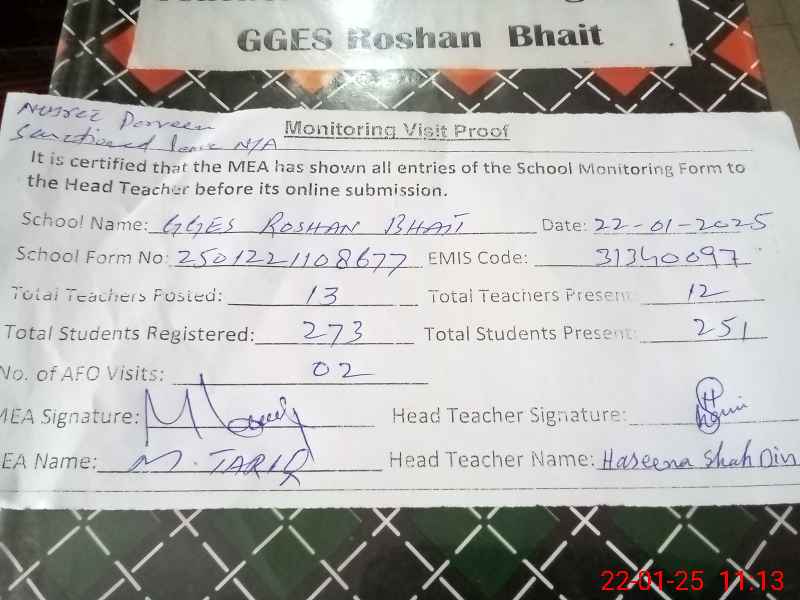 GGES Roshan Bhait
Parveen
Sanctioned leave N/A
Monitoring Visit Proof
It is certified that the MEA has shown all entries of the School Monitoring Form to
the Head Teacher before its online submission.
School Name: GGES ROSHAN BHAIT Date: 22-01-2025
School Form No: 2501221108677 EMIS Code: 31340097
Total Teachers Posted: 13 Total Teachers Present: 12
Total Students Registered: 273 Total Students Present: 251
No. of AFO Visits: 02
MEA Signature: Head Teacher Signature:
EA Name: M. TARIQ Head Teacher Name: Haseena Shah Din
22-01-25 11:13